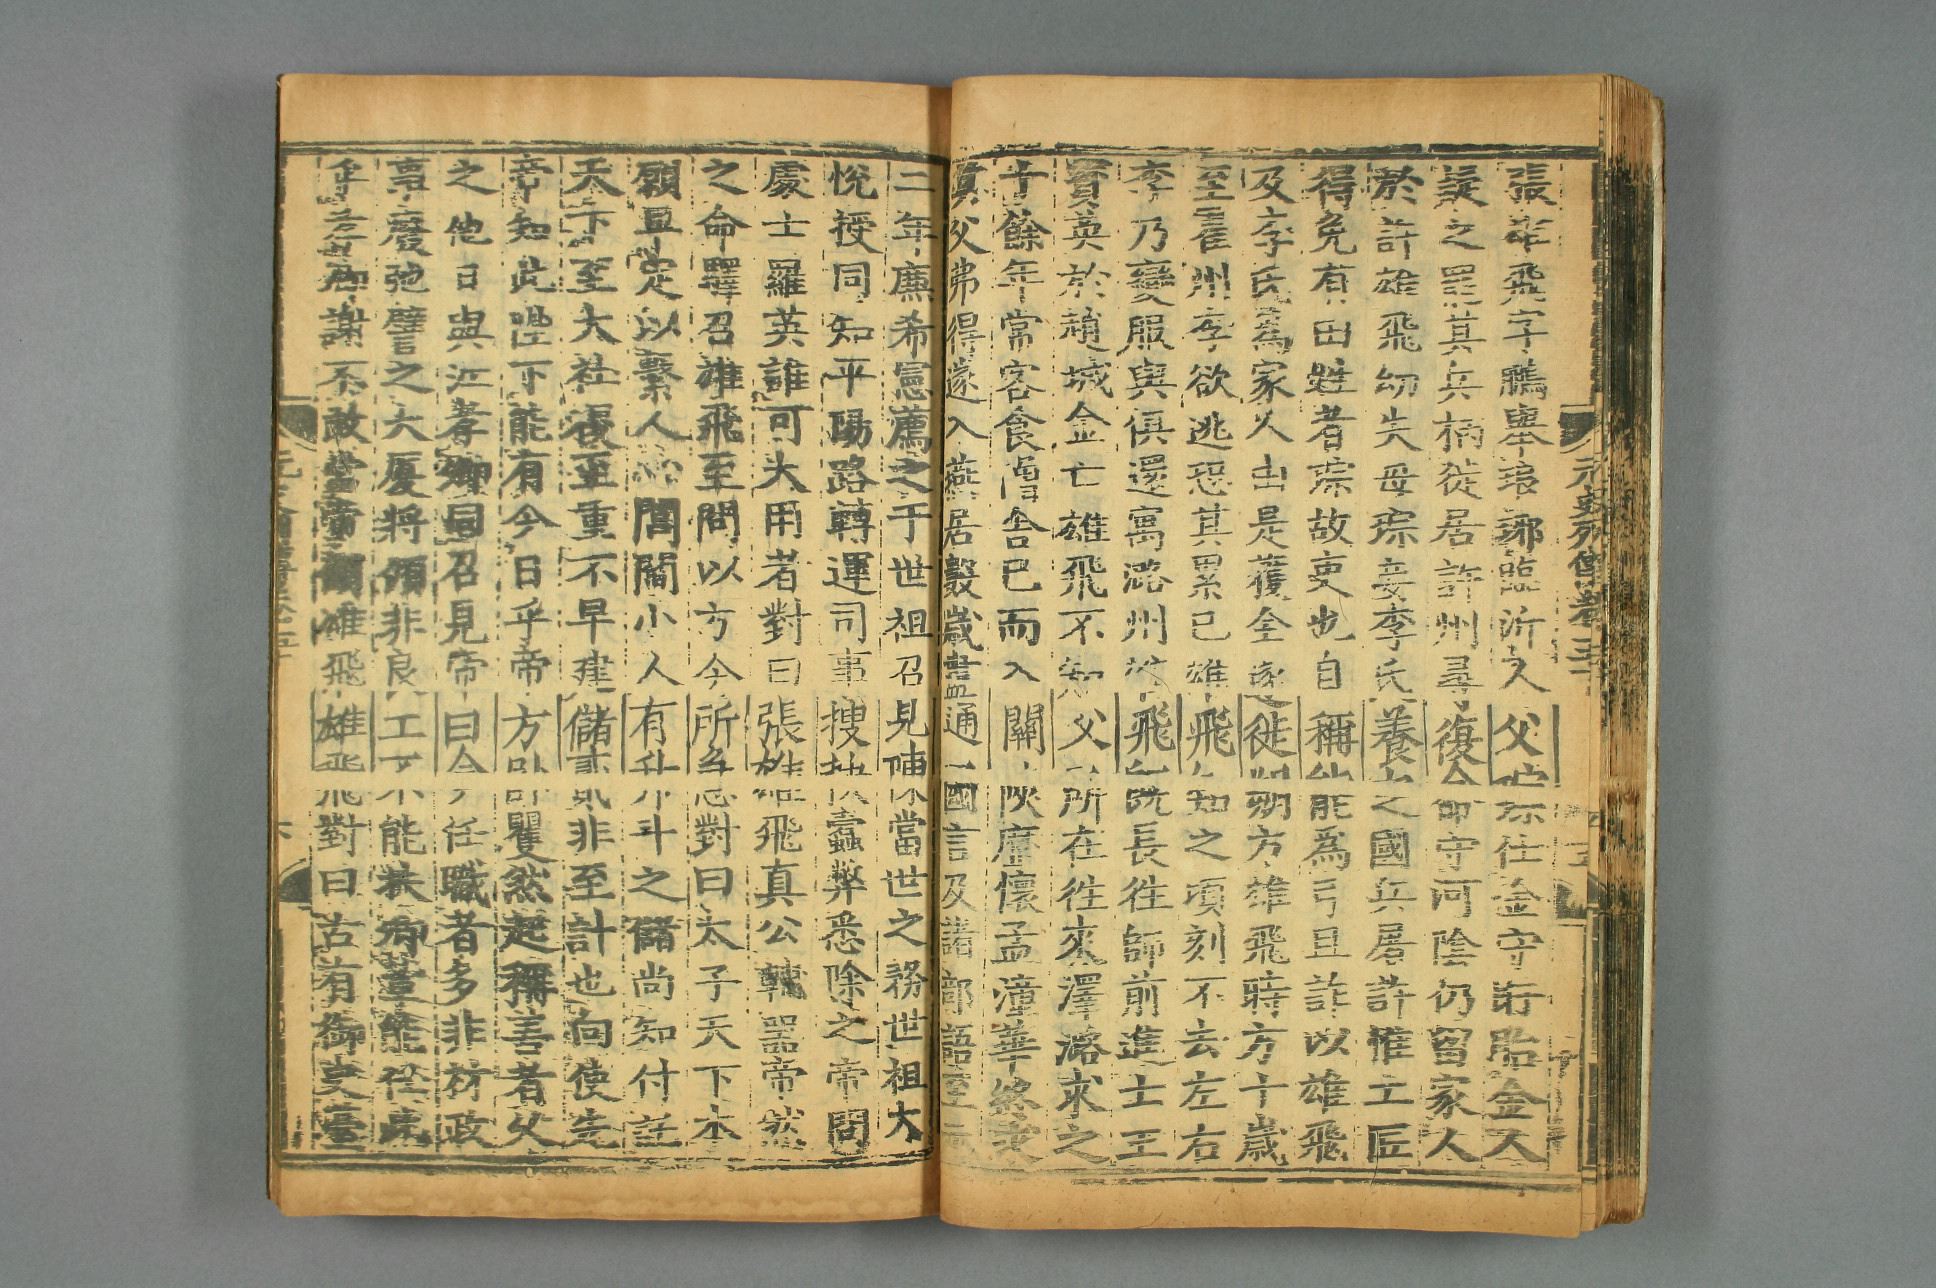 張雄飛字鵬舉琅琊臨沂人父琮仕金守盱眙金人
疑之罷其兵柄徙居許州尋復命守河陰仍留家人
於許雄飛幼失母琮妾李氏養之國兵屠許惟工匠
得免有田姓者琮故吏也自稱能為弓且詐以雄飛
及李氏為家人由是獲全遂徙朔方雄飛時方十歲
至霍州李欲逃恐其累已雄飛知之頃刻不去左右
李乃變服與俱還寓潞州雄飛既長往師前進士王
寶英於趙城金亡雄飛不知父所在往來澤潞求之
十餘年常客食僧舍已而入關陝歷懷孟潼華終求
其父弗得遂入燕居數歲盡通國言及諸部語至元
二年廉希憲薦之于世祖召見陳當世之務世祖大
悅授同知平陽路轉運司事搜抉蠹弊悉除之帝問
處士羅英誰可大用者對曰張雄飛真公輔器帝然
之命驛召雄飛至問以方今所急對曰太子天下本
願早定以繫人心閭閻小人有升斗之儲尚知付託
天下至大社稷至重不早建儲貳非至計也向使先
帝知此陛下能有今日乎帝方臥矍然起稱善者久
之他日與江孝卿同召見帝曰今任職者多非材政
事廢弛譬之大廈將傾非良工不能扶卿輩能任此
乎孝卿謝不敢當帝顧雄飛雄飛對曰古有御史臺
元史列傳卷五十